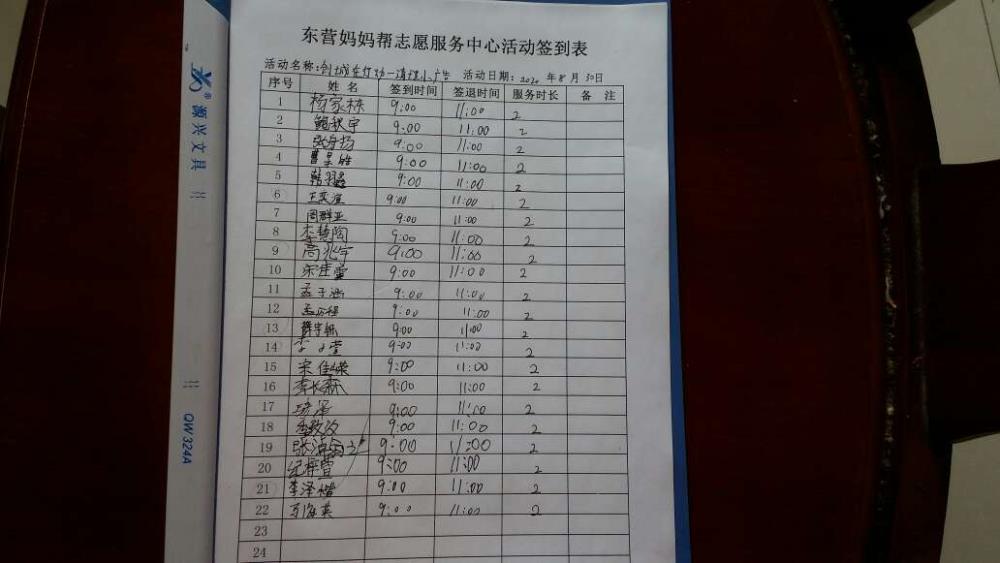 东营妈妈帮志愿服务中心活动签到表
活动名称:创城在行动—清理小广告 活动日期:2020年8月30日
序号 姓名 签到时间 签退时间 服务时长 备注
1 杨家栋 9:00 11:00 2
2 鲍秋宇 9:00 11:00 2
3 9:00 11:00 2
4 曹昊皓 9:00 11:00 2
5 韩羽 9:00 11:00 2
6 9:00 11:00 2
7 周群亚 9:00 11:00 2
8 李慧陶 9:00 11:00 2
9 高兆宇 9:00 11:00 2
10 宋佳萱 9:00 11:00 2
11 孟子涵 9:00 11:00 2
12 9:00 11:00 2
13 9:00 11:00 2
14 9:00 11:00 2
15 宋佳嵘 9:00 11:00 2
16 李长霖 9:00 11:00 2
17 9:00 11:00 2
18 9:00 11:00 2
19 9:00 11:00 2
20 纪梓萱 9:00 11:00 2
21 李泽楷 9:00 11:00 2
22 万海英 9:00 11:00 2
23
24
源兴文具
QW324A